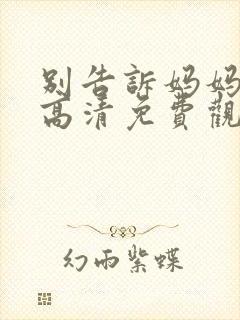 别告訴妈妈
高清免費觀
幻雨紫蝶